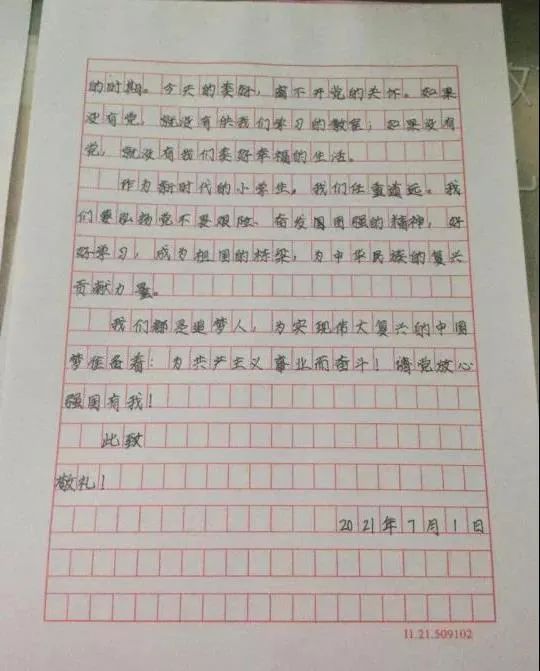 的时期。今天的美好，离不开党的关怀。如果
还有党，就没有供我们学习的教室；如果没有
党，就没有我们美好幸福的生活。
作为新时代的小学生，我们任重道远。我
们要弘扬党不畏艰险、奋发图强的精神，好
好学习，成为祖国的栋梁，为中华民族的复兴
贡献力量。
我们都是追梦人，为实现伟大复兴的中国
梦准备着：为共产主义事业而奋斗！请党放心
强国有我！
此致
敬礼！
2021年7月1日
11.21.509102